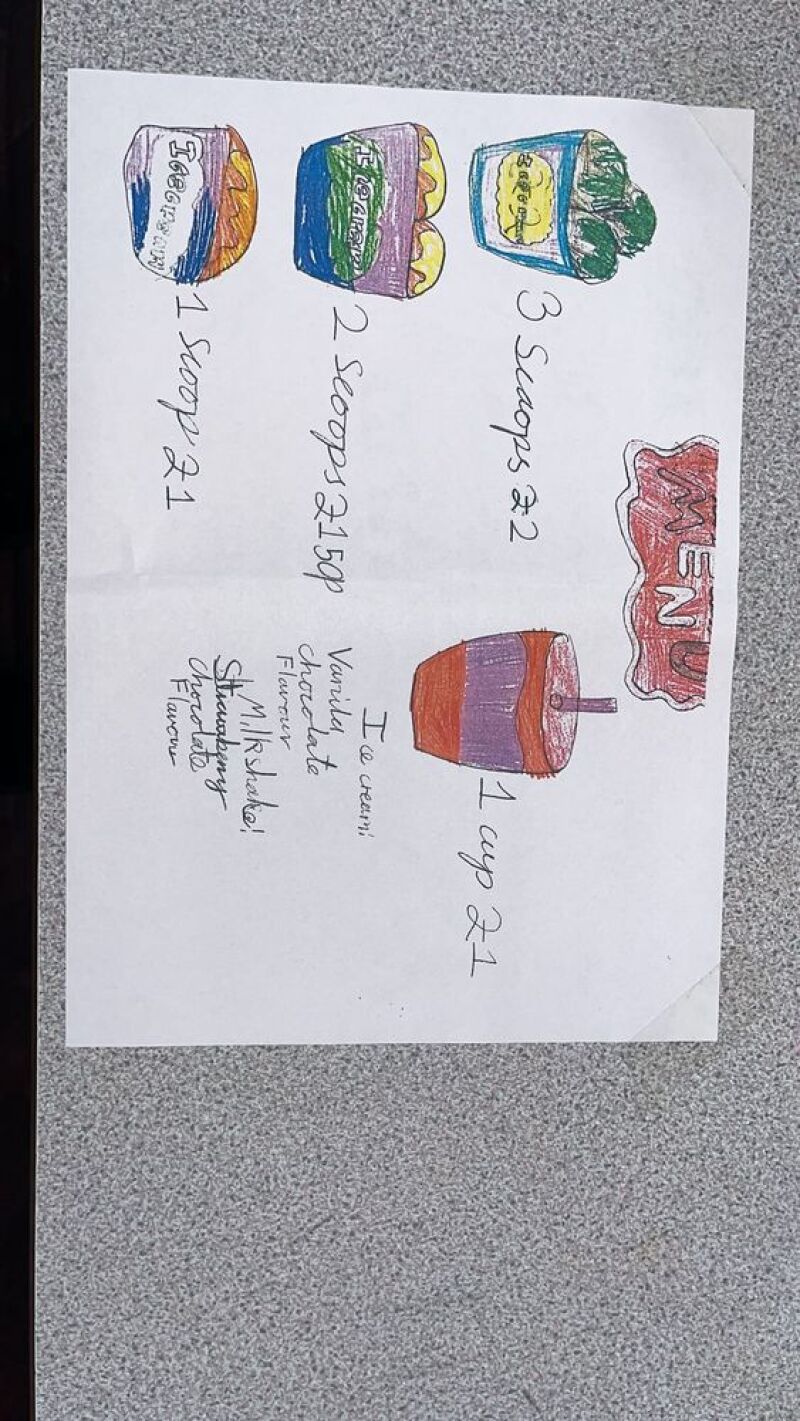 MENU
3 Scoops £2
2 Scoops £1 50p
1 Scoop £1
1 cup £1
Ice cream:
Vanilla
chocolate
Flavour
Milkshake!
Strawberry
Chocolate
Flavour